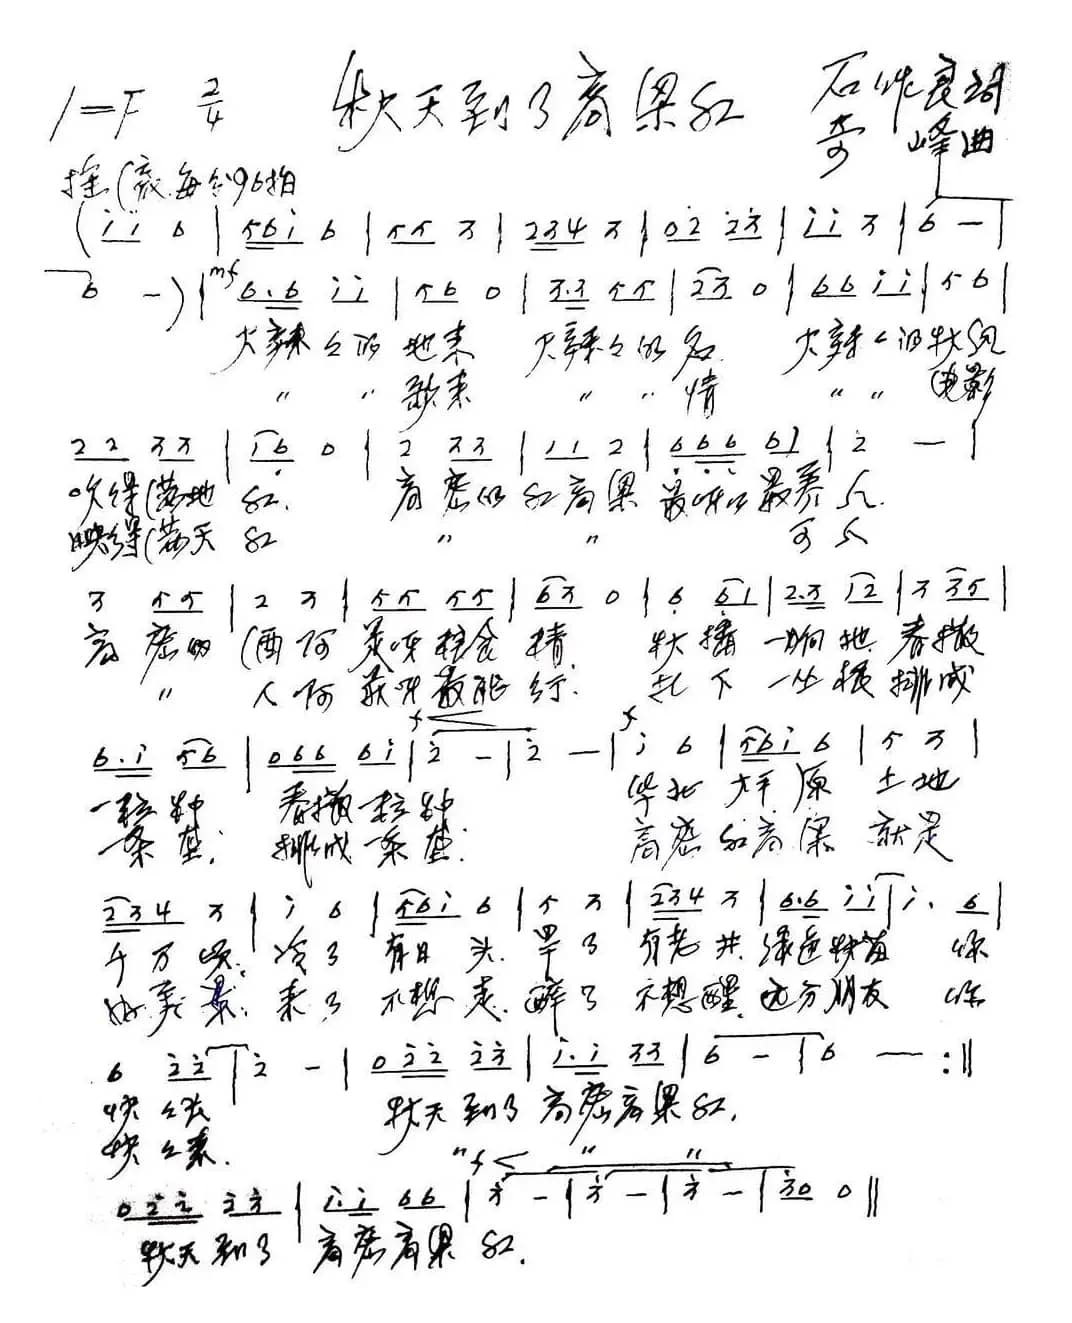 1=F 2/4 秋天到了高粱红 石作良词
奇峰曲
摇滚 每分96拍
(i i 6 | 5 6 i 6 | 5 5 3 | 2 3 4 3 | 0 2 2 3 | i i 3 | 6 — |
6 —) | mf 6. 6 i i | 5 6 0 | 3. 3 5 5 | 2 3 0 | 6 6 i i | 5 6 |
火辣々的 地来 火辣々的名 火辣々的秋风
〃 〃 歌来 〃 〃 情 〃 〃 电影
2 2 3 3 | 1 6 0 | 2 3 3 | 1 1 2 | 6 6 6 6 1 | 2 — |
吹得(落地 红. 高密的红高粱 最 最养人.
映得(落天 红 〃 〃 可人
3 5 5 | 2 3 | 5 5 5 5 | 6 3 0 | 6 6 1 | 2. 3 1 2 | 3 3 5 |
高密的 (酒 啊 精. 秋播一垧地 春撒
〃 人 啊 行. 一 排成
6. i 5 6 | 0 6 6 6 i | f 2 — | 2 — | f i 6 | 5 6 i 6 | 5 3 |
一粒种 春撒一粒种 华北 坪原 土地
一条垄; 排成一条垄. 高密红高粱 就是
2 3 4 3 | i 6 | 5 6 i 6 | 5 3 | 2 3 4 3 | 6. 6 i i | i. 6 |
千万顷. 冷了 有日头. 旱了 有老井. 绿色秧苗 你
好美景. 来了 不想走. 醉了 不想醒. 朋友 你
6 2 2 | 2 — | 0 2 2 2 3 | i. i 3 3 | 6 — | 6 — :‖
快々长 秋天到了 高密高粱红.
快々来. 〃 〃 〃
0 2 2 2 3 | i. i 6 6 | f 3 — | 3 — | 3 — | 3 0 0 ‖
秋天到了 高密高粱 红.